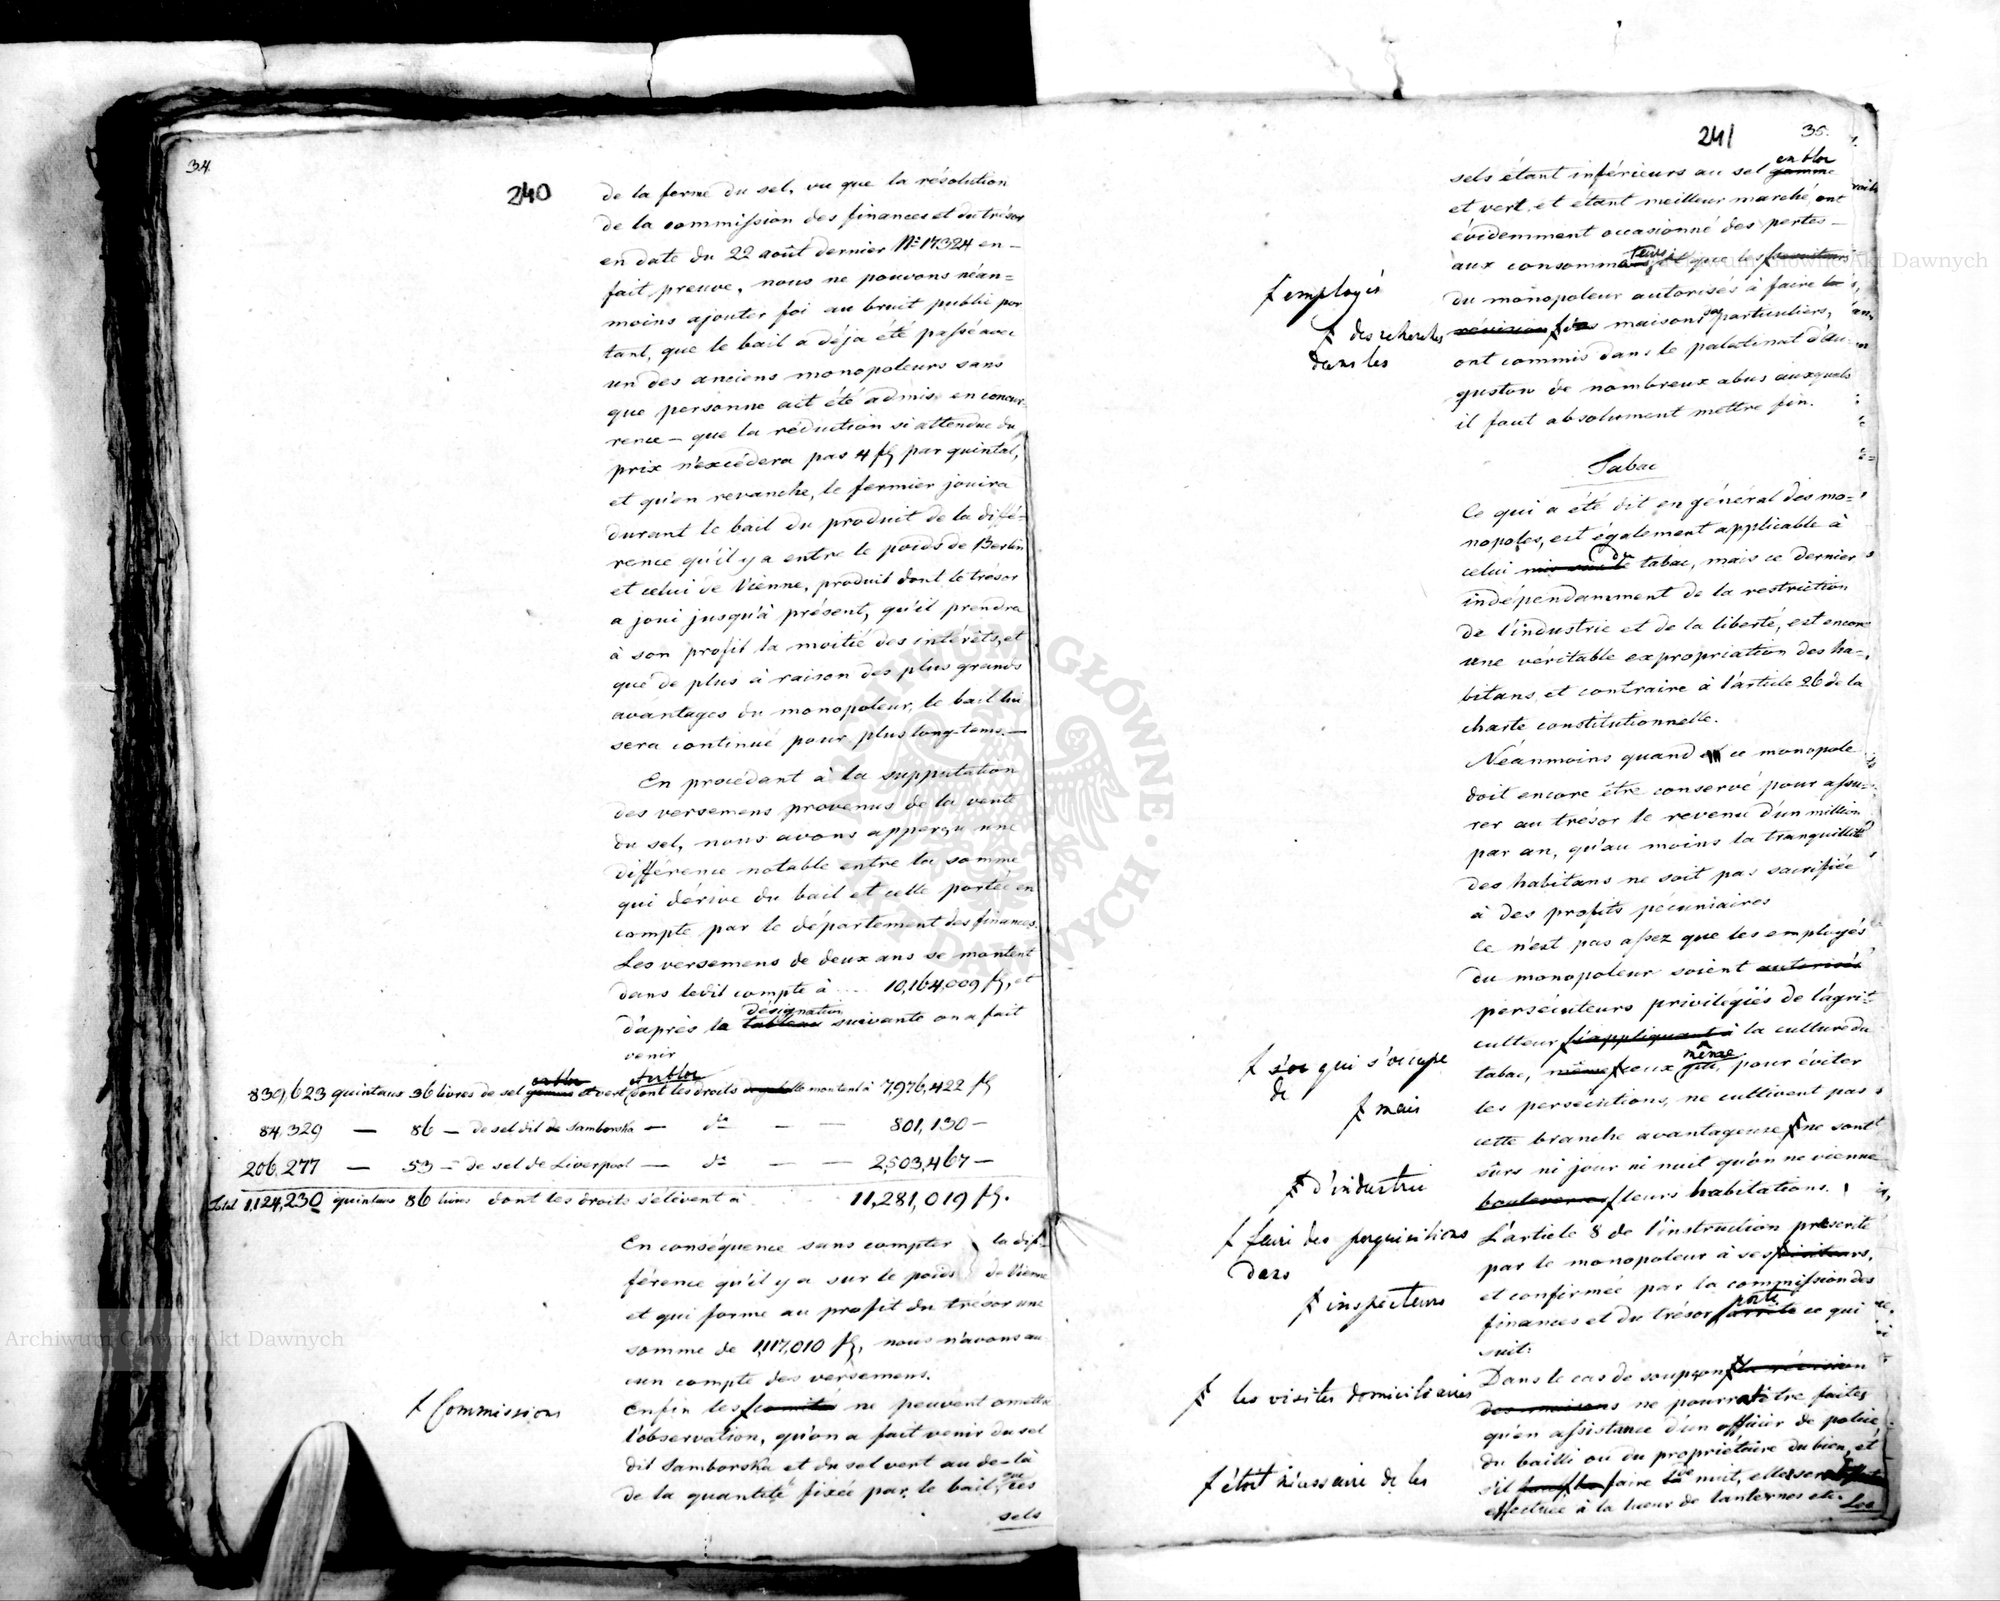 34.
240
de la ferme du sel, vu que la résolution
de la commission des finances et du trésor
en date du 22 août dernier No 17324 en-
fait preuve, nous ne pouvons néan=
moins ajouter foi au bruit public por
tant, que le bail a déja été passé avec
un des anciens monopoleurs sans
que personne ait été admis en concur-
rence – que la réduction si attendue du
prix n'excédera pas 4 fl par quintal,
et qu'en revanche, le fermier jouira
durant le bail du produit de la diffé-
rence qu'il y a entre le poids de Berlin
et celui de Vienne, produit dont le trésor
a joui jusqu'à présent, qu'il prendra
à son profit la moitié des intérêts, et
que de plus à raison des plus grands
avantages du monopoleur, le bail lui
sera continué pour plus long-tems. –
En procédant à la supputation
des versemens provenus de la vente
du sel, nous avons apperçu une
différence notable entre la somme
qui dérive du bail et celle portée en
compte par le département des finances.
Les versemens de deux ans se montent
dans ledit compte à ... 10,164,009 fl, et
désignation
d'après la tableau suivante on a fait
venir
en bloc
839,623 quintaux 36 livres de sel gemme et vert dont les droits montent à 7,976,422 fl
84,329 — 86 — de sel dit de Samborska — do — — 801,130 —
206,277 — 53 — de sel de Liverpool — do — — 2,503,467 —
Total 1,124,230 quintaux 86 livres dont les droits s'élèvent à 11,281,019 fl.
En conséquence sans compter la dif-
férence qu'il y a sur le poids de Vienne
et qui forme au profit du trésor une
somme de 1,117,010 fl, nous n'avons au-
cun compte des versemens.
Commissions
Enfin les comités ne peuvent omettre
l'observation, qu'on a fait venir du sel
dit Samborska et du sel vert au de-là
de la quantité fixée par le bail, que ces
sels
241
35.
en bloc
sels étant inférieurs au sel gemme
et vert, et étant meilleur marché, ont
évidemment occasionné des pertes –
aux consommateurs que les
employés
du monopoleur autorisés à faire la
des recherches
dans les
révision des maisons particuliers,
ont commis dans le palatinat d'Au-
gustow de nombreux abus auxquels
il faut absolument mettre fin.
Tabac
Ce qui a été dit en général des mo-
nopoles, est également applicable à
celui du tabac, mais ce dernier
indépendamment de la restriction
de l'industrie et de la liberté, est encore
une véritable expropriation des ha-
bitans et contraire à l'article 26 de la
charte constitutionnelle.
Néanmoins quand ce monopole
doit encore être conservé pour assu-
rer au trésor le revenu d'un million
par an, qu'au moins la tranquillité
des habitans ne soit pas sacrifiée
à des profits pecuniaires
Ce n'est pas assez que les employés
du monopoleur soient autorisés
persécuteurs privilégiés de l'agri-
culteur s'appliquant à la culture du
qui s'occupe
de
même
tabac, même eux qui, pour éviter
mais
les persécutions, ne cultivent pas
cette branche avantageuse ne sont
d'industrie
sûrs ni jour ni nuit qu'on ne vienne
bouleverser leurs habitations.
faire des perquisitions
dans
L'article 8 de l'instruction prescrite
par le monopoleur à ses visiteurs,
inspecteurs
et confirmée par la commission des
porte
finances et du trésor arrête ce qui
suit:
Dans le cas de soupçon la révision
les visites domiciliaires
des maisons ne pourra être faites
qu'en assistance d'un officier de police,
du bailli ou du propriétaire du bien, et
était nécessaire de les
s'il faire la nuit, elle sera
effectuée à la lueur de lanternes etc.